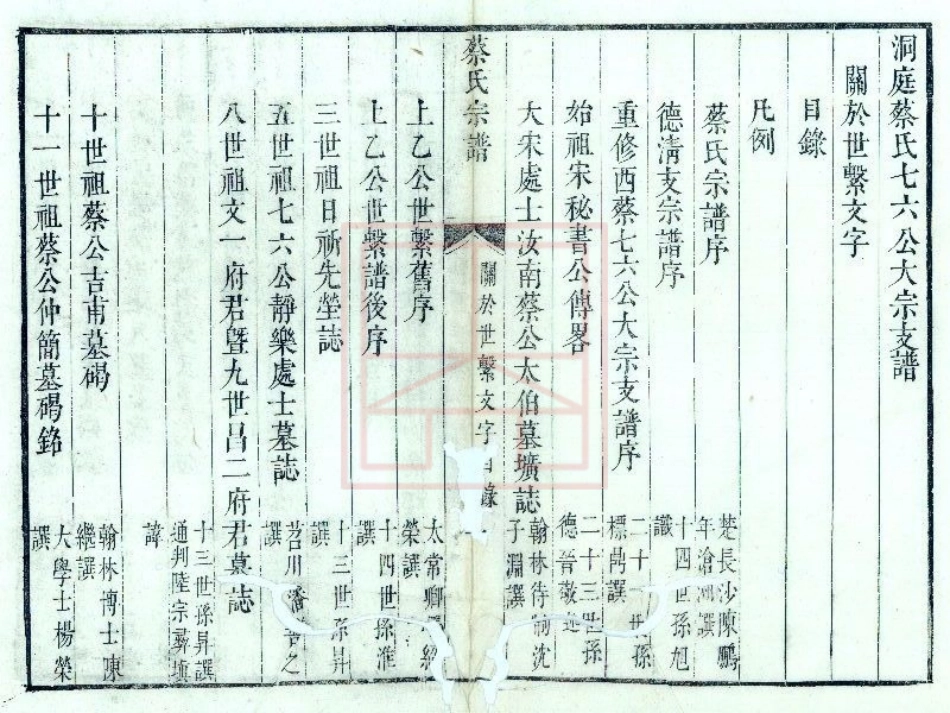 洞庭蔡氏七六公大宗支譜
關於世繫文字
目錄
凡例
蔡氏宗譜序
楚長沙陳鵬
年滄洲譔
德淸支宗譜序
十四世孫旭
識
重修西蔡七六公大宗支譜序
二十一世孫
標鼎譔
始祖宋秘書公傳畧
二十三世孫
德晉敬述
大宋處士汝南蔡公太伯墓壙誌
翰林待制沈
子淵譔
蔡氏宗譜
關於世繫文字目錄
一
上乙公世繫舊序
太常卿
榮譔
上乙公世繫譜後序
十四世孫淮
譔
三世祖日新先塋誌
十三世孫昇
譔
五世祖七六公靜樂處士墓誌
苕川潘 之
譔
八世祖文一府君曁九世昌二府君墓誌
十三世孫昇譔
通判陸宗彞塡
諱
十世祖蔡公吉甫墓碣
翰林博士陳
繼譔
十一世祖蔡公仲簡墓碣銘
大學士楊榮
譔